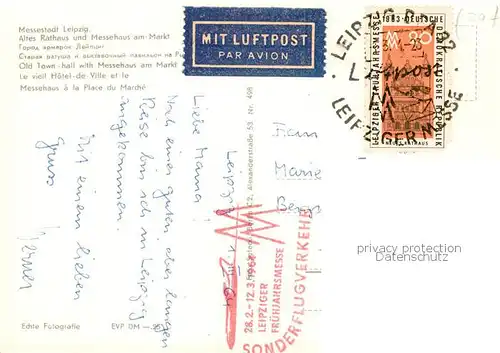 Messestadt Leipzig
Altes Rathaus und Messehaus am Markt
Город ярмарок Лейпциг
Старая ратуша и выставочный павильон на
Old Town-hall with Messehaus am Markt
Le vieil Hôtel-de Ville et le
Messehaus à la Place du Marché
MIT LUFTPOST
PAR AVION
LEIPZIG
LEIPZIGER MESSE
1963 DEUTSCHE
DEMOKRATISCHE REPUBLIK
LEIPZIGER FRÜHJAHRSMESSE
20
ALTES RATHAUS
Leipzig, 1. III. 64
Liebe Mama
Nach einer guten, aber langen
Reise bin ich in Leipzig
angekommen.
Mit einem lieben
Gruss
Werner
Alexanderstraße 53 Nr. 498
Frau
Marie
28.2.-12.3.1964
LEIPZIGER
FRÜHJAHRSMESSE
SONDERFLUGVERKEHR
Echte Fotografie
EVP DM
privacy protection
Datenschutz
www.ansichtskartenversand.com